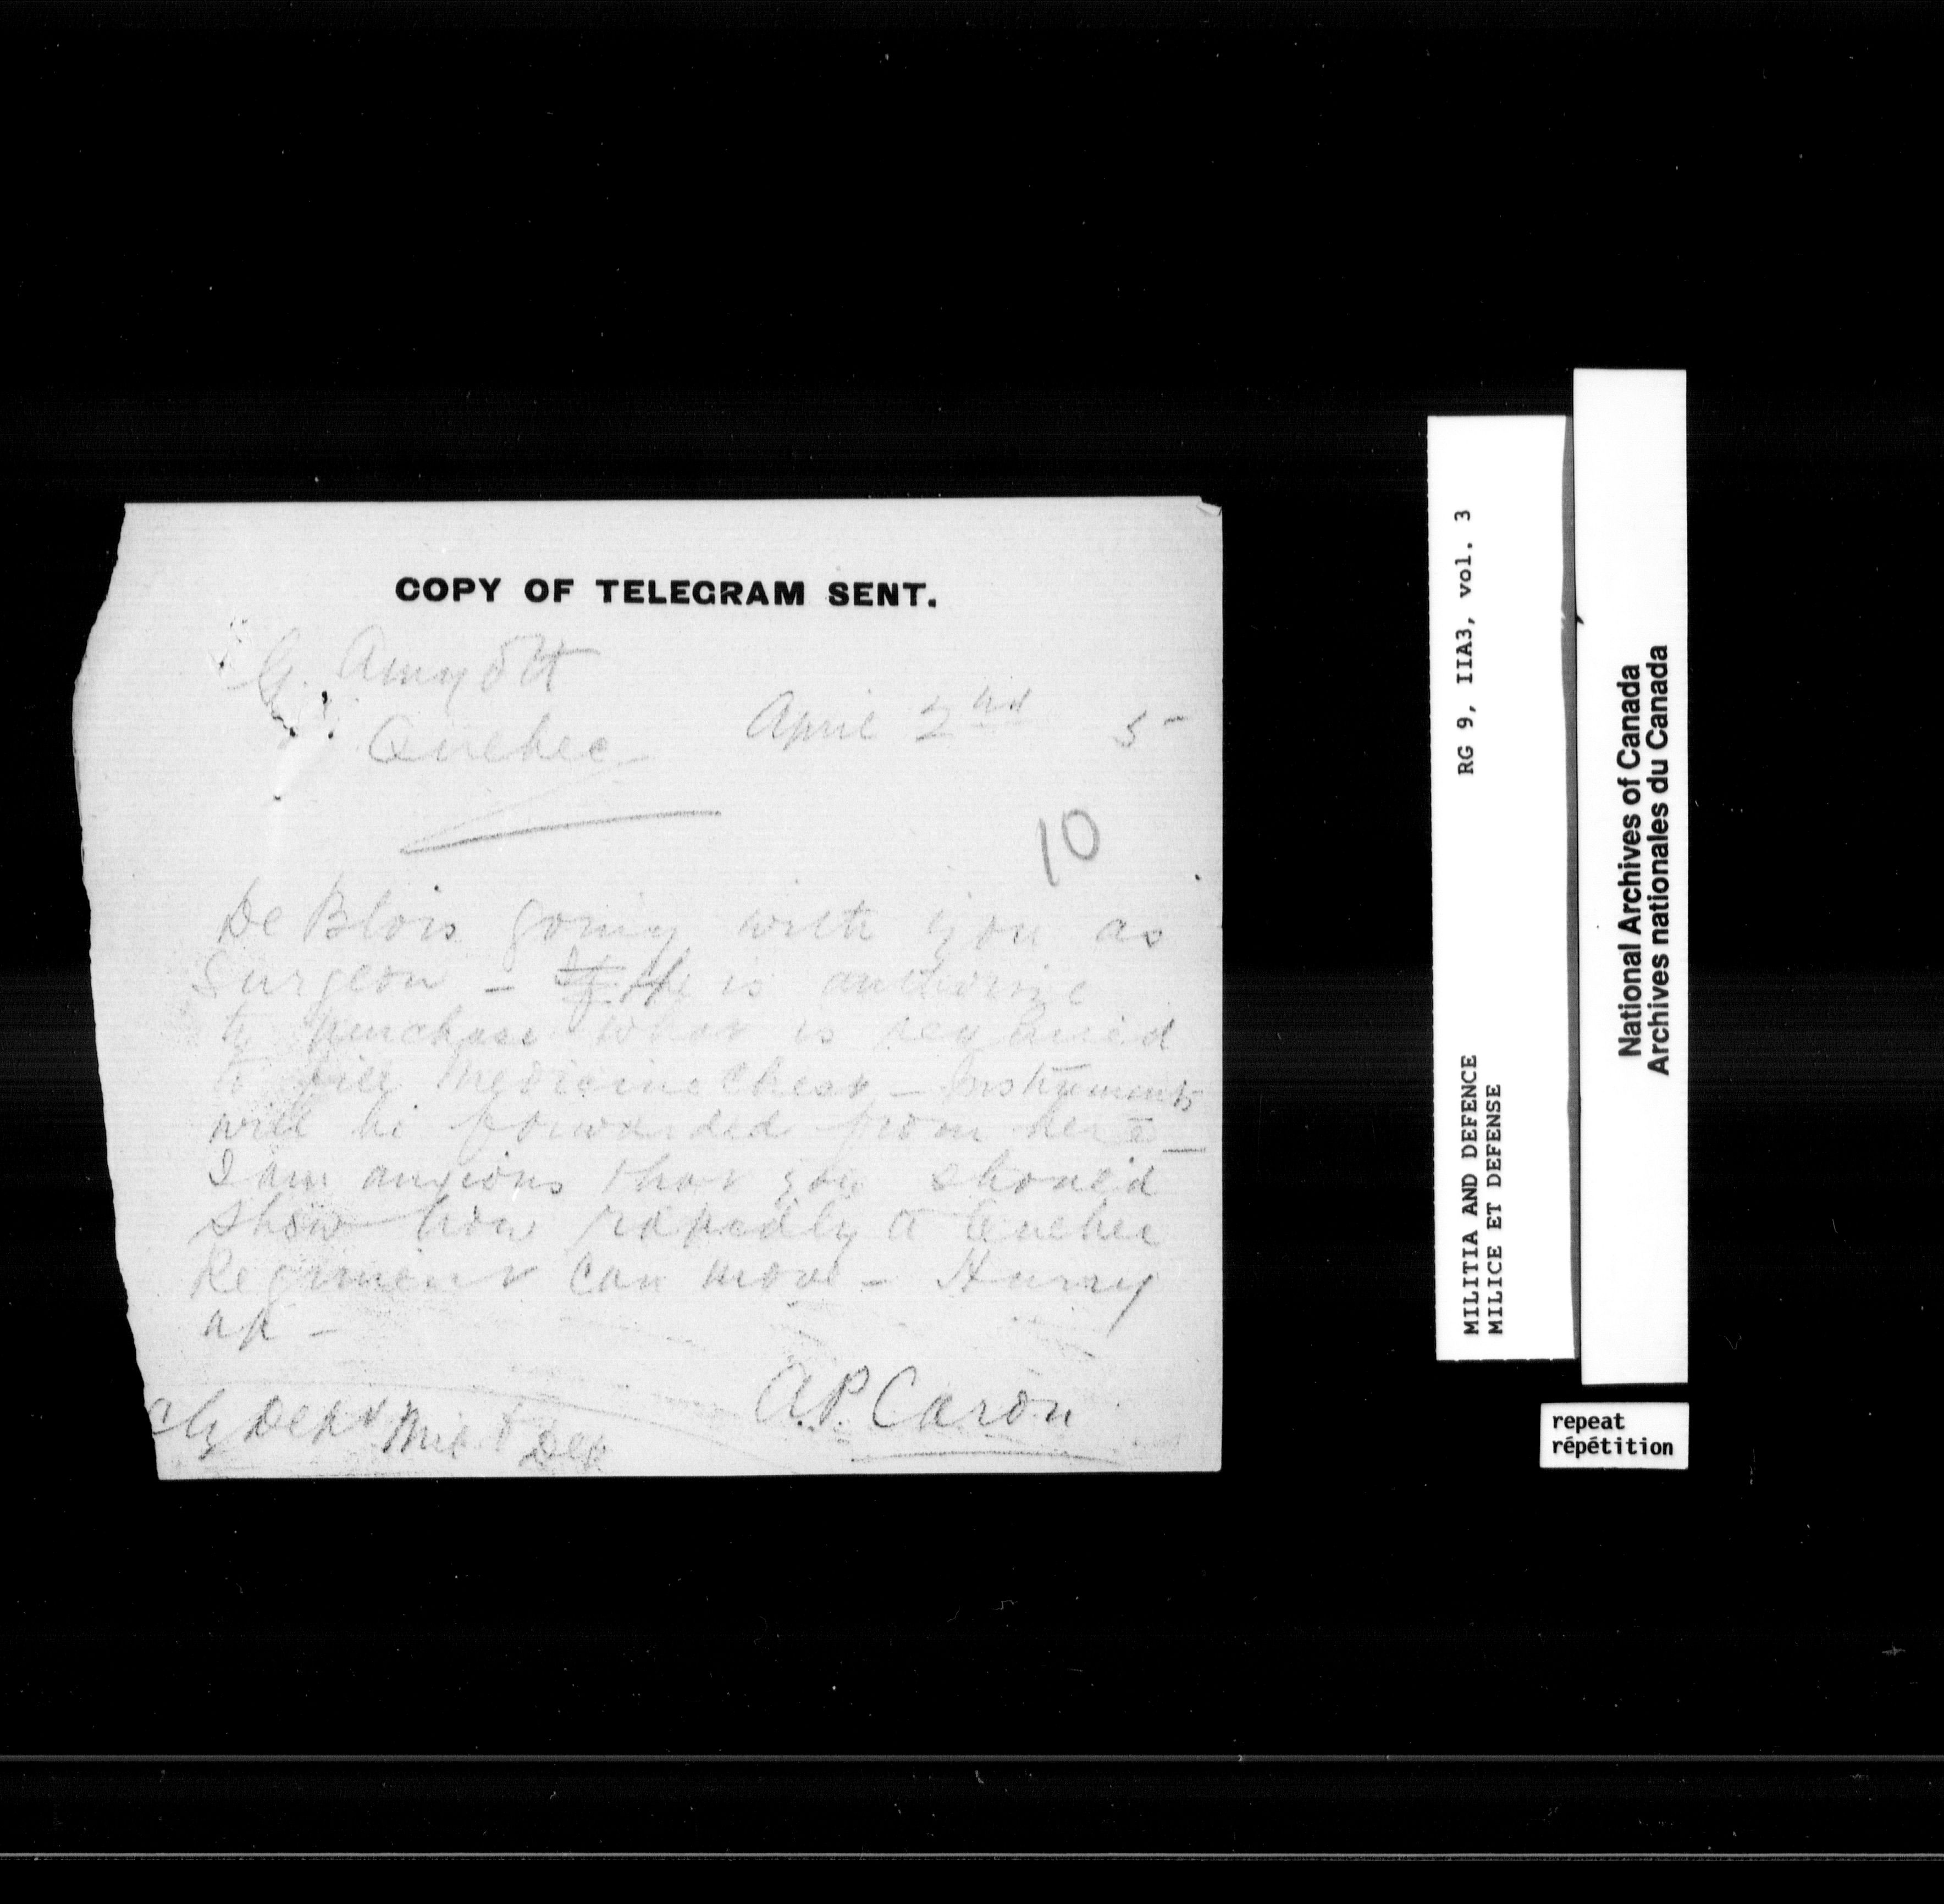 COPY OF TELEGRAM SENT.
G. Amyott
Quebec
April 2nd 5
10
De Blois going with you as
Surgeon - If He is authorize
to purchase what is required
to fill Medicine Chest - Instruments
will be forwarded from here -
I am anxious that you should
show how rapidly a Quebec
Regiment can move - Hurry
up -
A.P. Caron
Chg Dept Mil & Def
RG 9, IIA3, vol. 3
MILITIA AND DEFENCE
MILICE ET DEFENSE
National Archives of Canada
Archives nationales du Canada
repeat
répétition